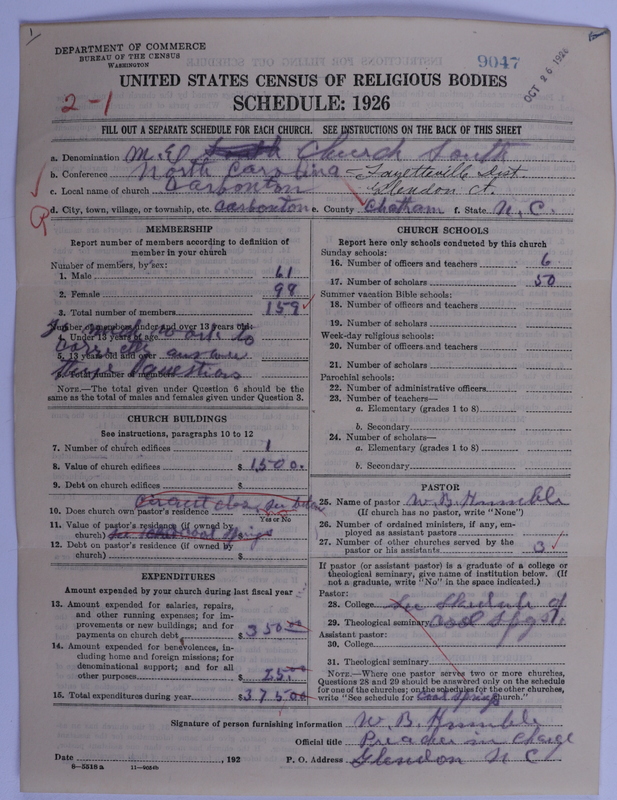 DEPARTMENT OF COMMERCE
BUREAU OF THE CENSUS
WASHINGTON
9047
OCT 26 1926
2-1
UNITED STATES CENSUS OF RELIGIOUS BODIES
SCHEDULE: 1926
FILL OUT A SEPARATE SCHEDULE FOR EACH CHURCH. SEE INSTRUCTIONS ON THE BACK OF THIS SHEET
a. Denomination M. E. South Church South
b. Conference North Carolina - Fayetteville Dist.
c. Local name of church Carbonton Glendon Ct.
d. City, town, village, or township, etc. Carbonton e. County Chatham f. State N. C.
MEMBERSHIP
Report number of members according to definition of
member in your church
Number of members, by sex:
1. Male 61
2. Female 98
3. Total number of members 159
Number of members under and over 13 years old:
4. Under 13 years of age
5. 13 years old and over
6. Total number of members
to answer
these questions
NOTE.—The total given under Question 6 should be the
same as the total of males and females given under Question 3.
CHURCH BUILDINGS
See instructions, paragraphs 10 to 12
7. Number of church edifices 1
8. Value of church edifices $1,500.
9. Debt on church edifices $
Circuit does, see below
10. Does church own pastor's residence
Yes or No
11. Value of pastor's residence (if owned by
church) See Cool Springs
12. Debt on pastor's residence (if owned by
church) $
EXPENDITURES
Amount expended by your church during last fiscal year
13. Amount expended for salaries, repairs,
and other running expenses; for im-
provements or new buildings; and for
payments on church debt $350.00
14. Amount expended for benevolences, in-
cluding home and foreign missions; for
denominational support; and for all
other purposes $25.00
15. Total expenditures during year $375.00
CHURCH SCHOOLS
Report here only schools conducted by this church
Sunday schools:
16. Number of officers and teachers 6
17. Number of scholars 50
Summer vacation Bible schools:
18. Number of officers and teachers
19. Number of scholars
Week-day religious schools:
20. Number of officers and teachers
21. Number of scholars
Parochial schools:
22. Number of administrative officers
23. Number of teachers—
a. Elementary (grades 1 to 8)
b. Secondary
24. Number of scholars—
a. Elementary (grades 1 to 8)
b. Secondary
PASTOR
25. Name of pastor W. B. Humble
(If church has no pastor, write "None")
26. Number of ordained ministers, if any, em-
ployed as assistant pastors
27. Number of other churches served by the
pastor or his assistants 3
If pastor (or assistant pastor) is a graduate of a college or
theological seminary, give name of institution below. (If
not a graduate, write "No" in the space indicated.)
Pastor:
28. College See Schedule of
29. Theological seminary Cool Spgs.
Assistant pastor:
30. College
31. Theological seminary
NOTE.—Where one pastor serves two or more churches,
Questions 28 and 29 should be answered only on the schedule
for one of the churches; on the schedules for the other churches,
write "See schedule for Cool Springs church."
Signature of person furnishing information W. B. Humble
Official title Preacher in Charge
Date , 192 P. O. Address Glendon N C
8-5518 a 11-9034b